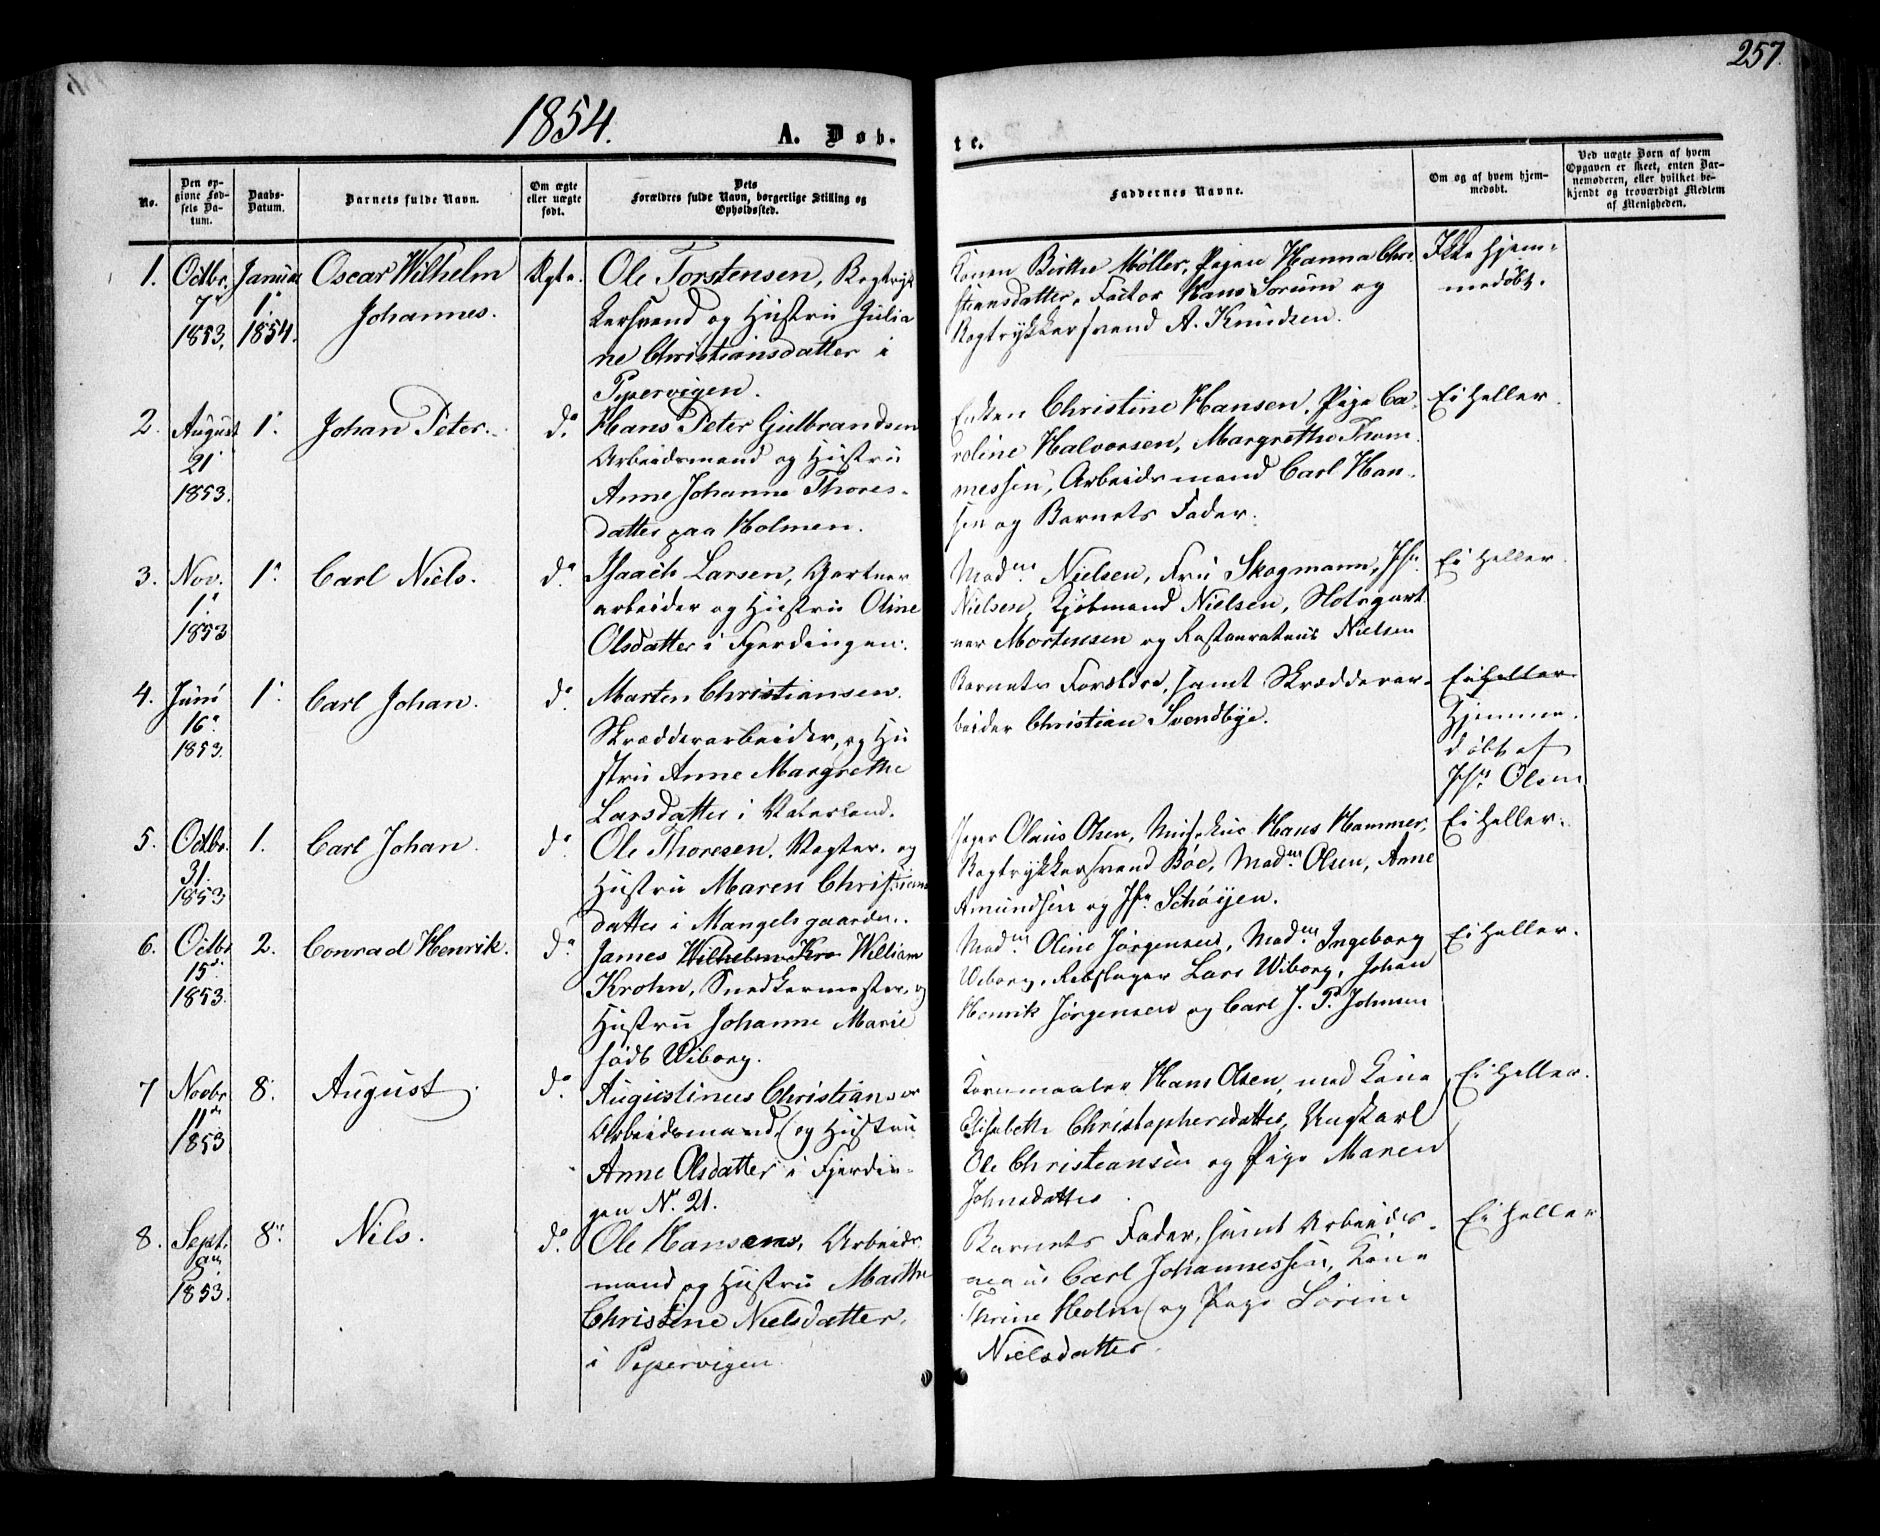 257.
1854.
A. Døb-
te.
No.
Den opgivne Fødsels Datum.
Daabs-Datum.
Barnets fulde Navn.
Om ægte eller uægte født.
Dets Forældres fulde Navn, borgerlige Stilling og Opholdssted.
Faddernes Navne.
Om og af hvem hjemmedøbt.
Ved uægte Børn af hvem Opgaven er skeet, enten Barnemoderen, eller hvilket bekjendt og troværdigt Medlem af Menigheden.
1. Octbr. 7de 1853. Januar 1. 1854.
Oscar Wilhelm
Johannes.
Ægte.
Ole Torstensen, Bogtryk
kersvend og Hustru Julia
ne Christiansdatter i
Pipervigen.
Konen Birthe Møller, Pigen Hanna Chri
stiansdatter, Factor Hans Sorum og
Bogtrykkersvend A. Knudsen.
Ikke hjem-
medøbt.
2. August 21 1853. 1.
Johan Peter.
do.
Hans Peter Gulbrandsen
Arbeidsmand og Hustru
Anne Johanne Thores-
datter paa Holmen.
Enken Christine Hansen, Pige Ca-
roline Halvorsen, Margrethe Thom
messen, Arbeidsmand Carl Han-
sen og Barnets Fader.
Ei heller.
3. Nov. 1. 1853 1.
Carl Niels.
do.
Isaach Larsen, Gartner
arbeider og Hustru Oline
Olsdatter i Fjerdingen.
Madm. Nielsen, Fru Skogmann, Jfr.
Nielsen, Kjøbmand Nielsen, Slotsgart
ner Mortensen og Restaurateur Nielsen
Ei heller.
4. Juni 16. 1853. 1.
Carl Johan.
do.
Marten Christiansen.
Skrædderarbeider, og Hu
stru Anne Margrethe
Larsdatter i Vaterland.
Barnets Forældre, samt Skrædderar-
beider Christian Svendbye.
Ei heller
Hjemme-
døbt af
Jfr. Olsen
5. Octbr. 31. 1853 1.
Carl Johan.
do.
Ole Thoresen, Vægter. og
Hustru Maren Christians
datter i Mangelsgaarden.
Jæger Olaus Olsen, Musikus Hans Hammer,
Bogtrykkersvend Böe, Madm. Olsen, Anne
Amundsen og Jfr. Schøyen.
Ei heller.
6. Octbr 15de 1853. 2.
Conrad Henrik.
do.
James Wilhelm Kro William
Krohn, Snedkermester, og
Hustru Johanne Marie
født Wiborg.
Madm. Oline Jørgensen, Madm. Ingeborg
Wiborg, Rebslager Lars Wiborg, Johan
Henrik Jørgensen og Carl J. P. Johnsen
Ei heller.
7 Novbr. 11de 1853 8.
August.
do.
Augustinus Christiansen
Arbeidsmand, og Hustru
Anne Olsdatter i Fjerdin-
gen No. 21.
Kornmaaler Hans Olsen, med Kone
Elisabeth Christophersdatter, Ungkarl
Ole Christiansen og Pige Maren
Johnsdatter.
Ei heller.
8. Sept. 1853. 8.
Nils.
do.
Ole Hansens, Arbeids
mand og Hustru Marthe
Christine Nielsdatter,
i Pipervigen
Barnets Fader, samt Arbeids-
mand Carl Johannessen, Kone
Thrine Holm og Pige Sorine
Nielsdatter.
Ei heller